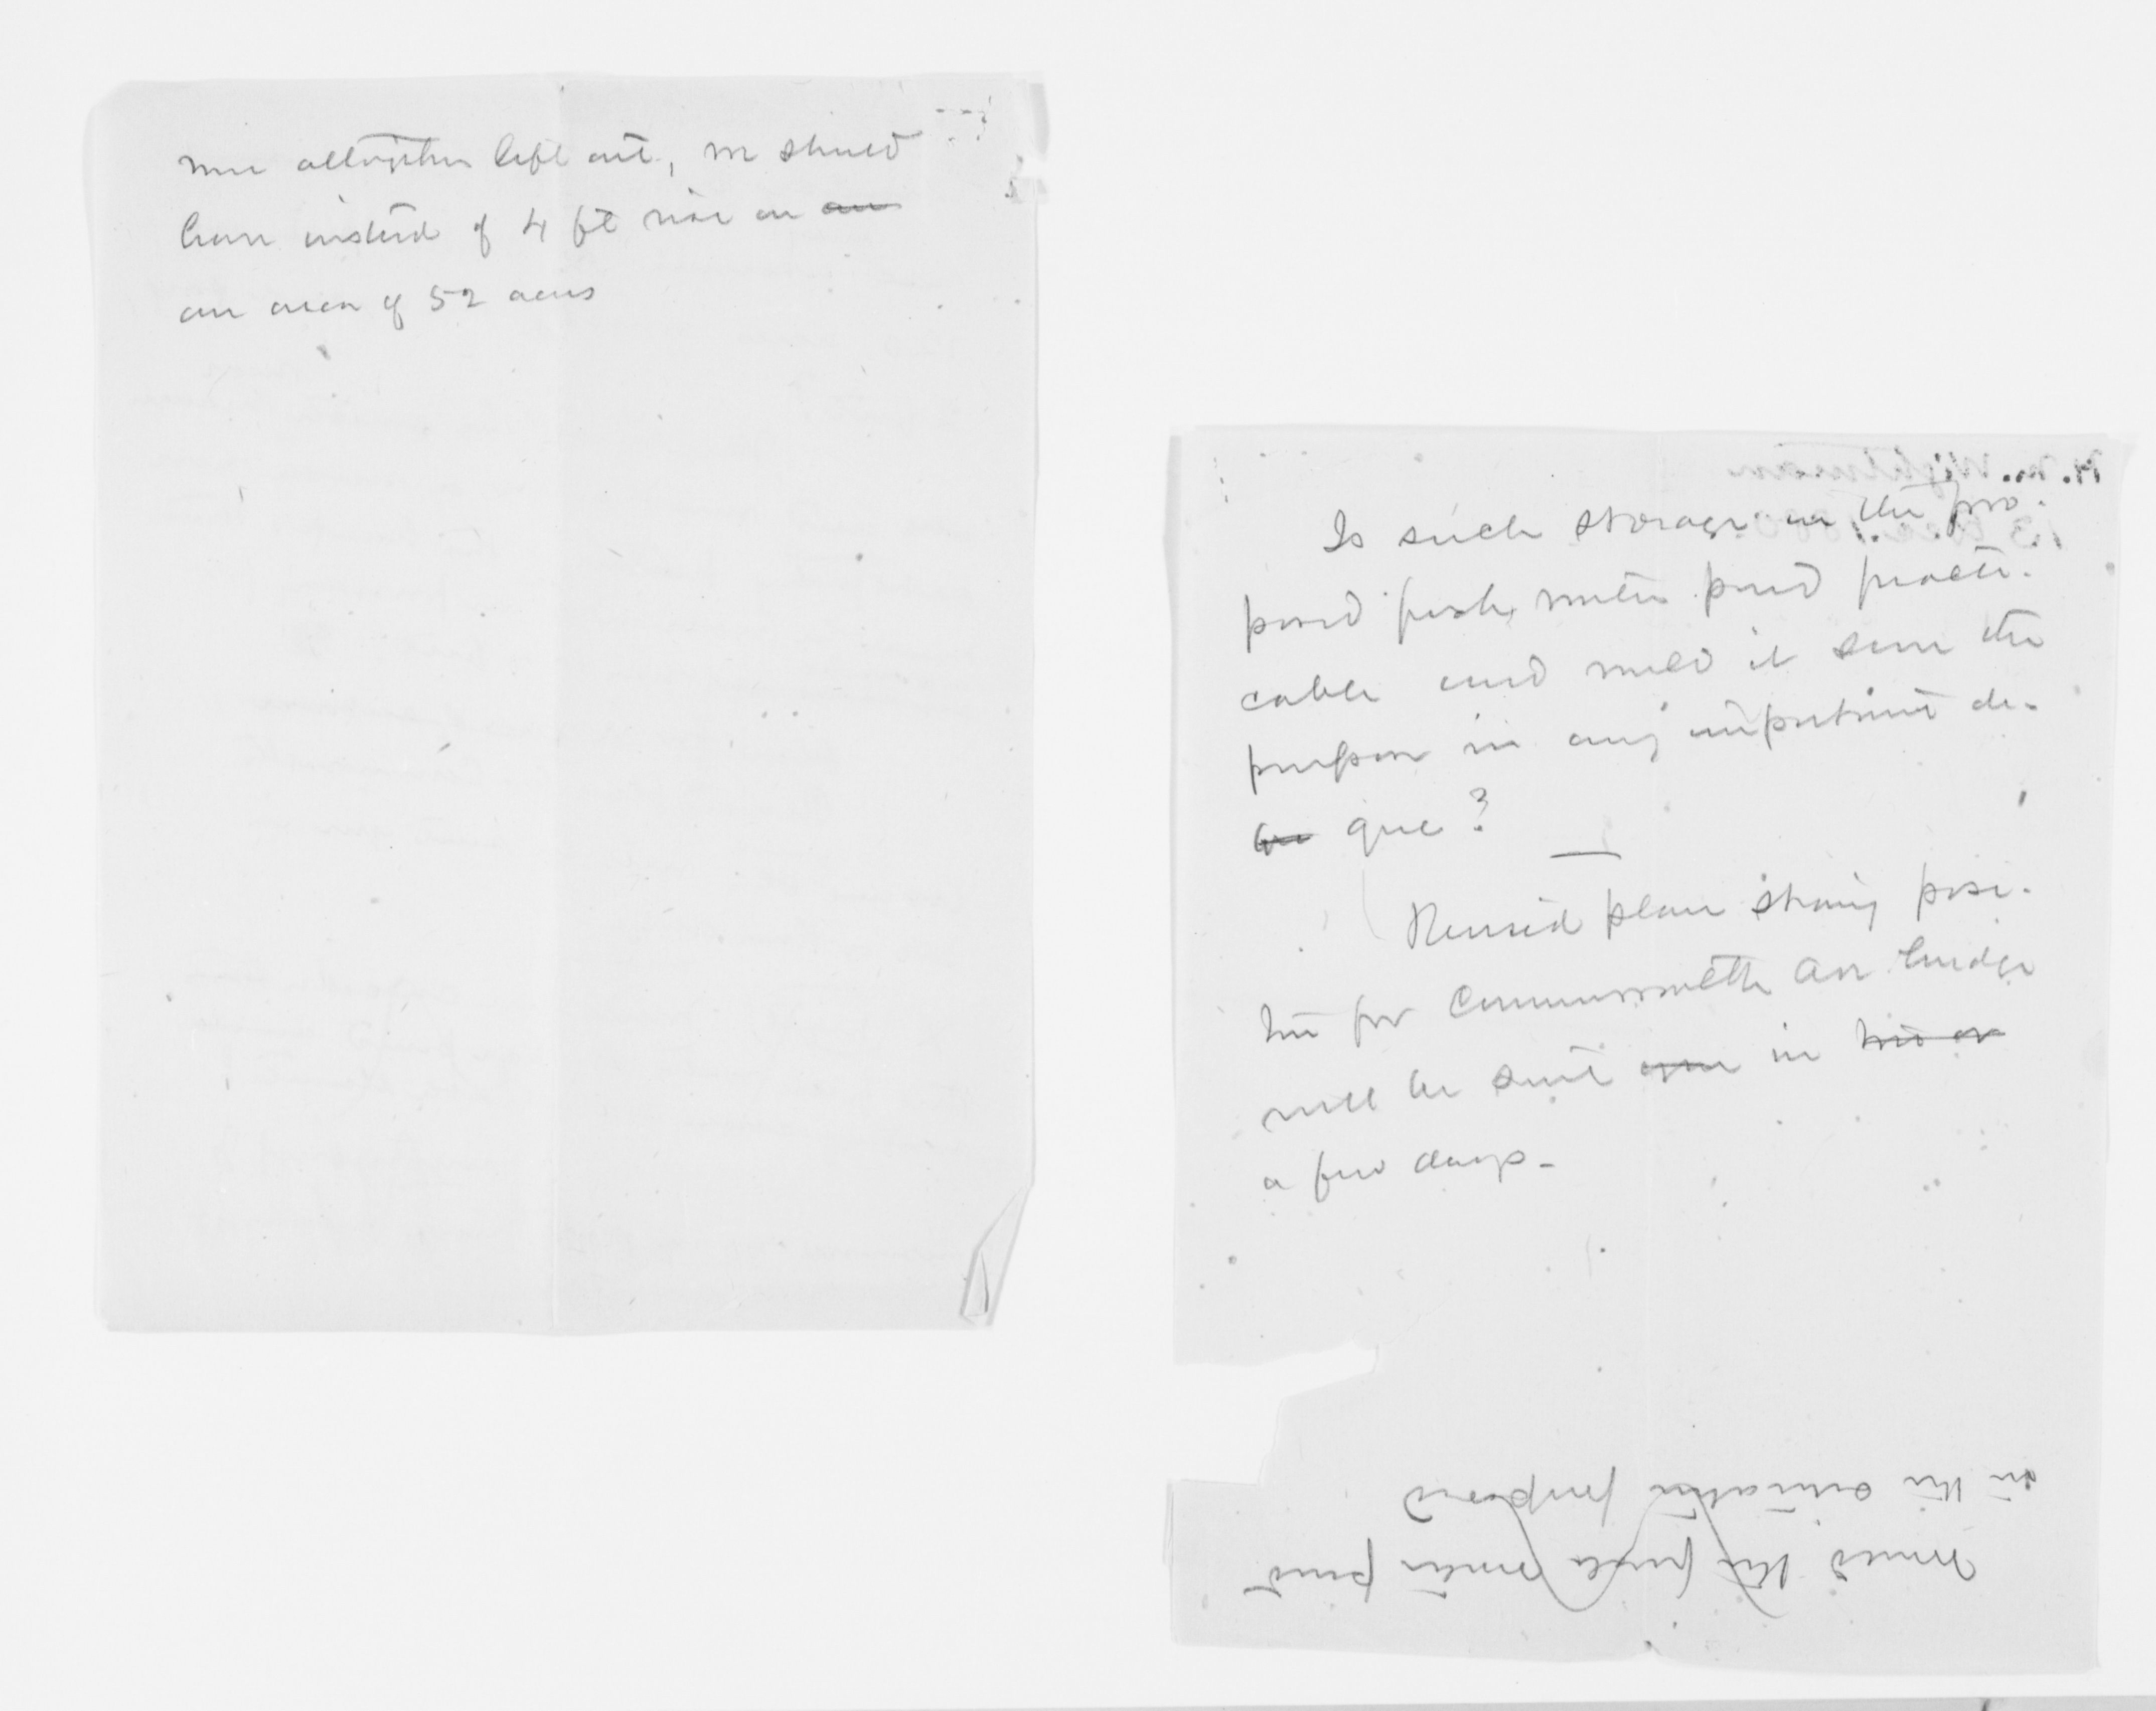 were altogether left out, we should
have instead of 4 ft rise on an
an area of 52 acres
Is such storage in the pro-
posed fresh water pond practi-
cable and would it serve the
purpose in any important de-
gree?
Revised plan showing posi-
tion for Commonwealth Ave bridge
will be sent in two or
a few days-
Would the fresh water pond
in the situation proposed